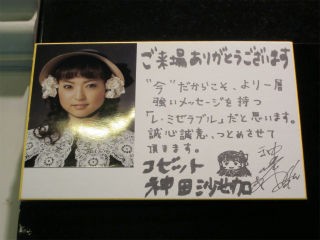 ご来場ありがとうございます
"今"だからこそ、より一層
強いメッセージを持つ
「レ・ミゼラブル」だと思います。
誠心誠意、つとめさせて
頂きます。
コゼット
神田沙也加